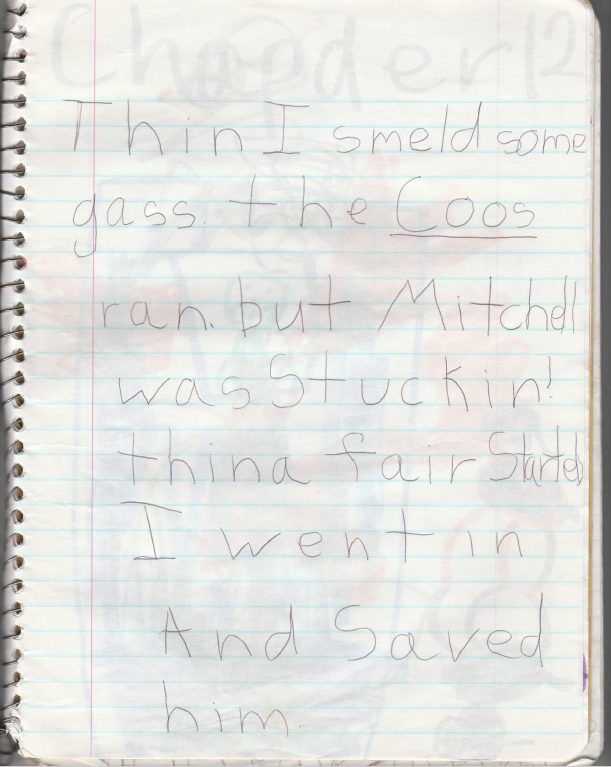 Chapder 12
Thin I smeld some
gass. the Coos
ran. but Mitchell
was Stuck in!
thin a fair Started
I went in
And Saved
him.